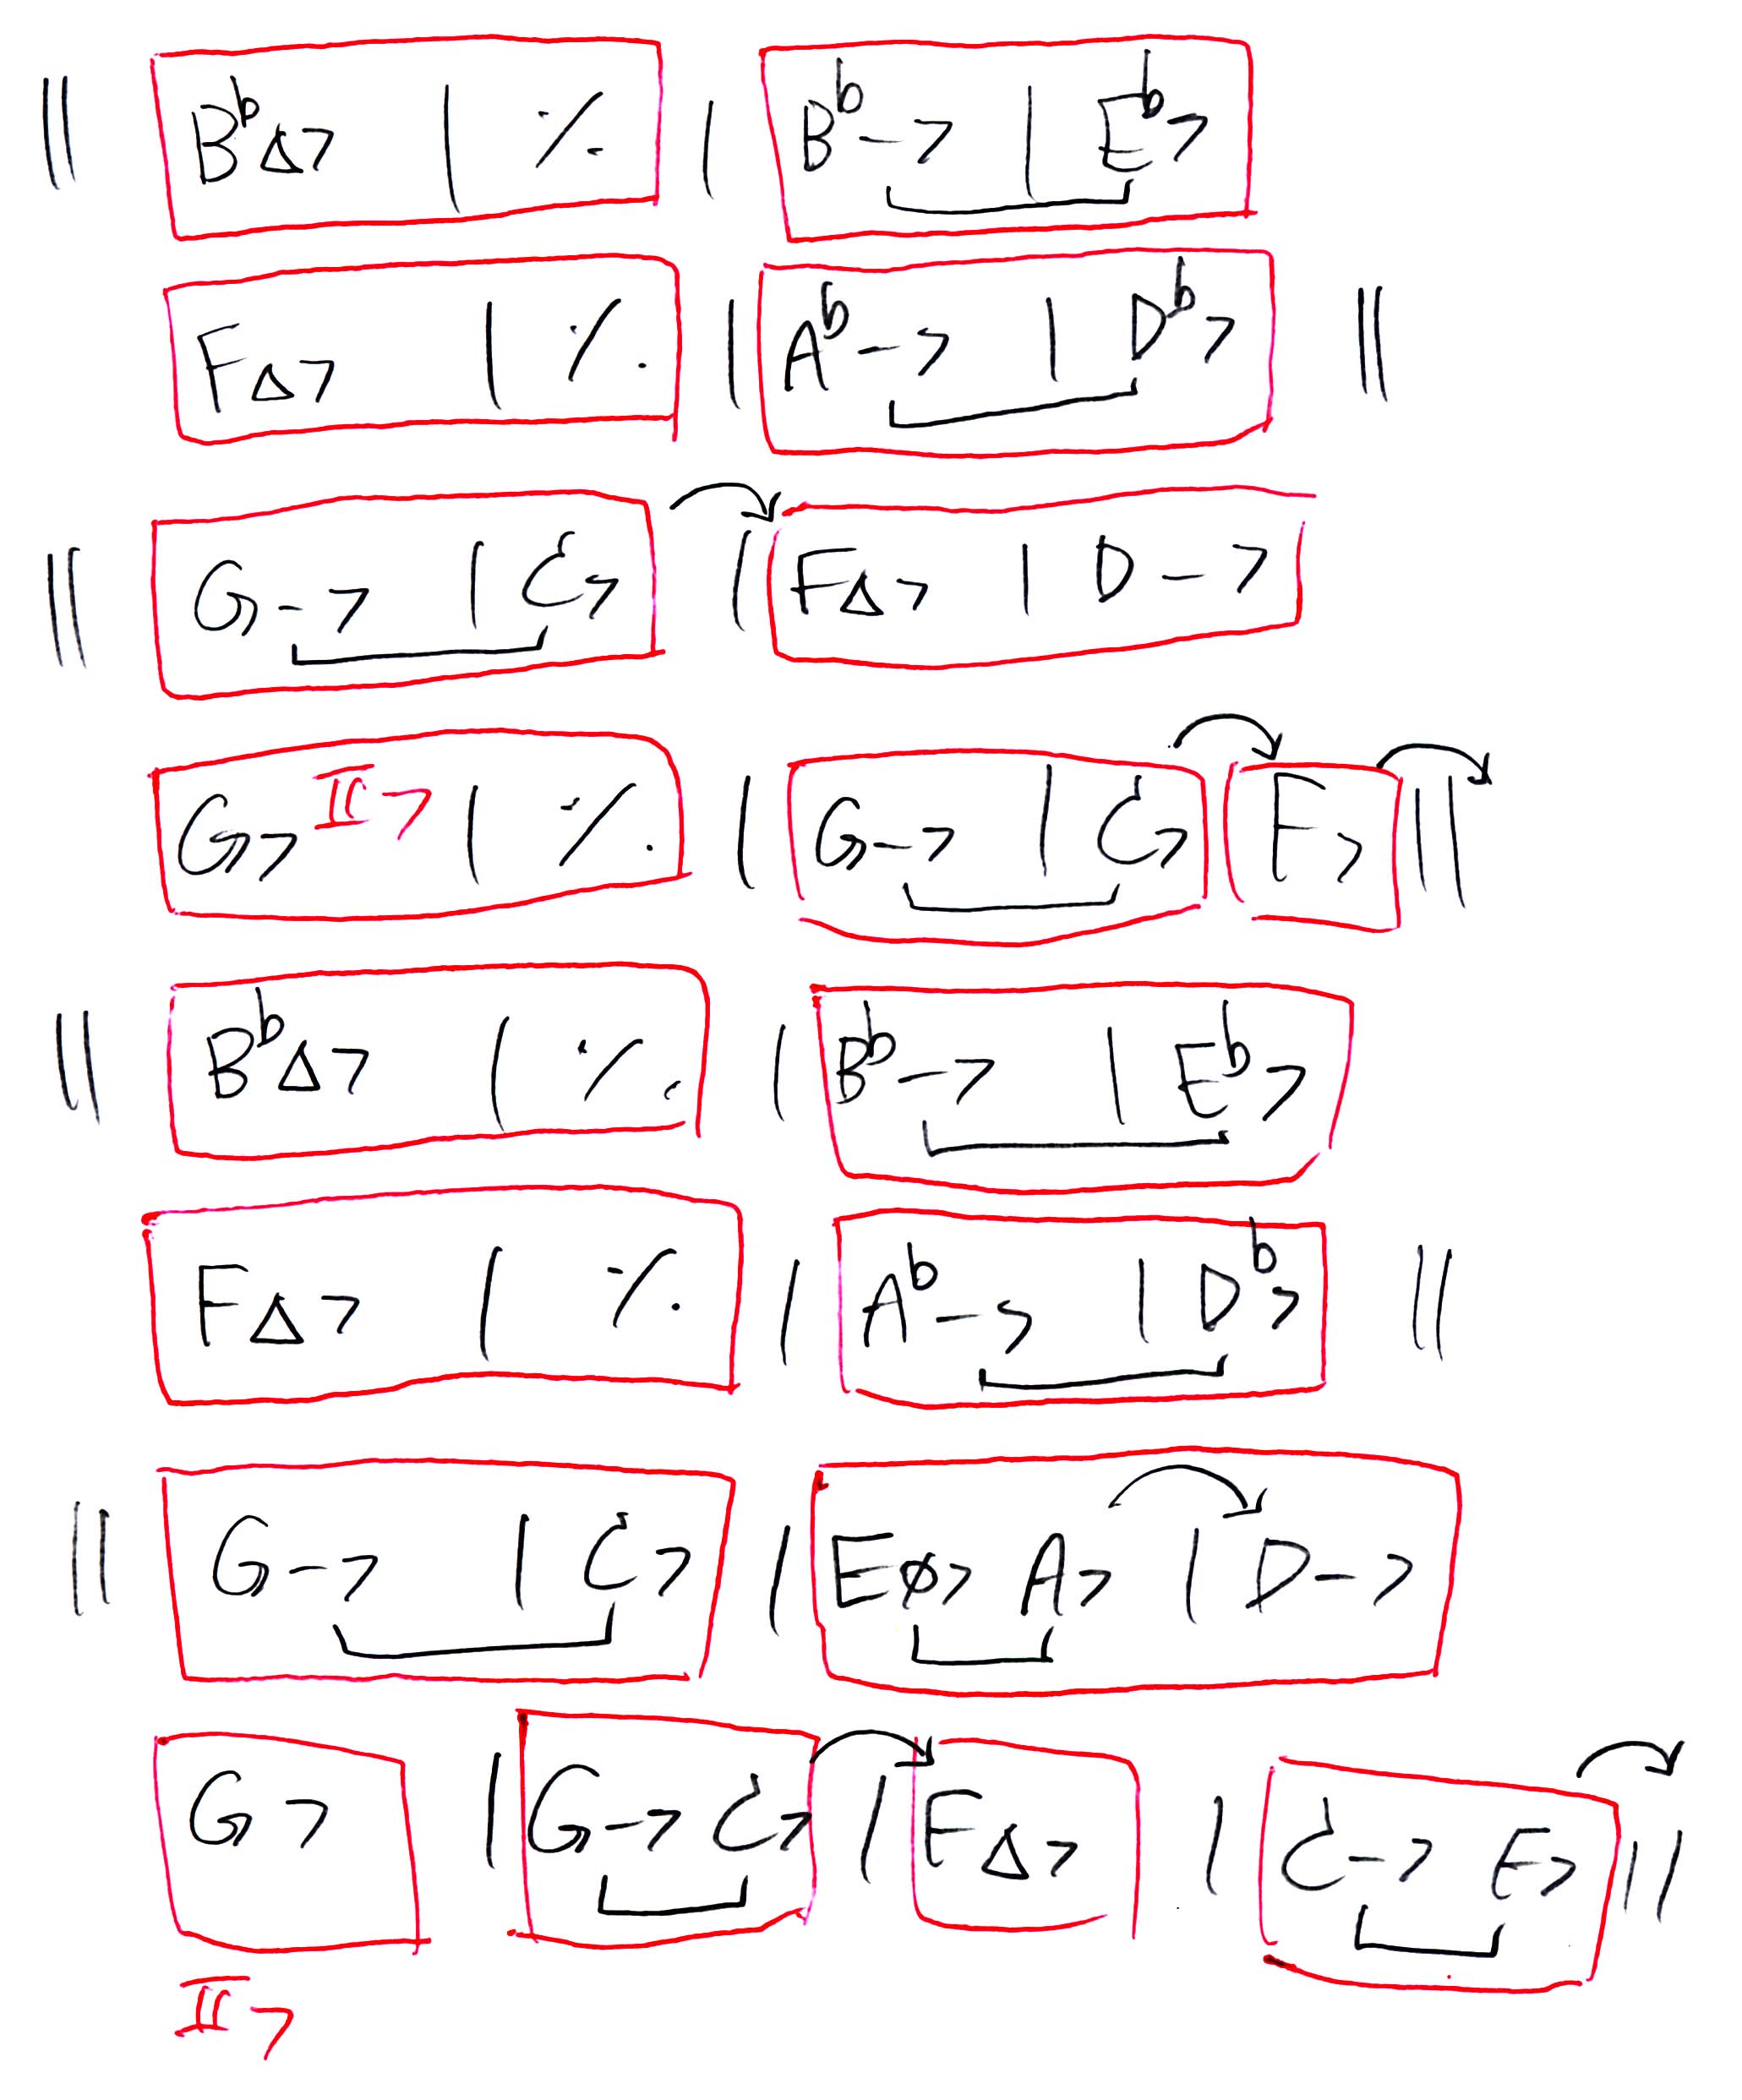 ‖ B♭Δ7 | % | B♭-7 | E♭7
FΔ7 | % | A♭-7 | D♭7 ‖
‖ G-7 | C7 | FΔ7 | D-7
G7 II7 | % | G-7 | C7 F7 ‖
‖ B♭Δ7 | % | B♭-7 | E♭7
FΔ7 | % | A♭-7 | D♭7 ‖
‖ G-7 | C7 | Eø7 A7 | D-7
G7 | G-7 C7 | FΔ7 | C-7 F7 ‖
II7